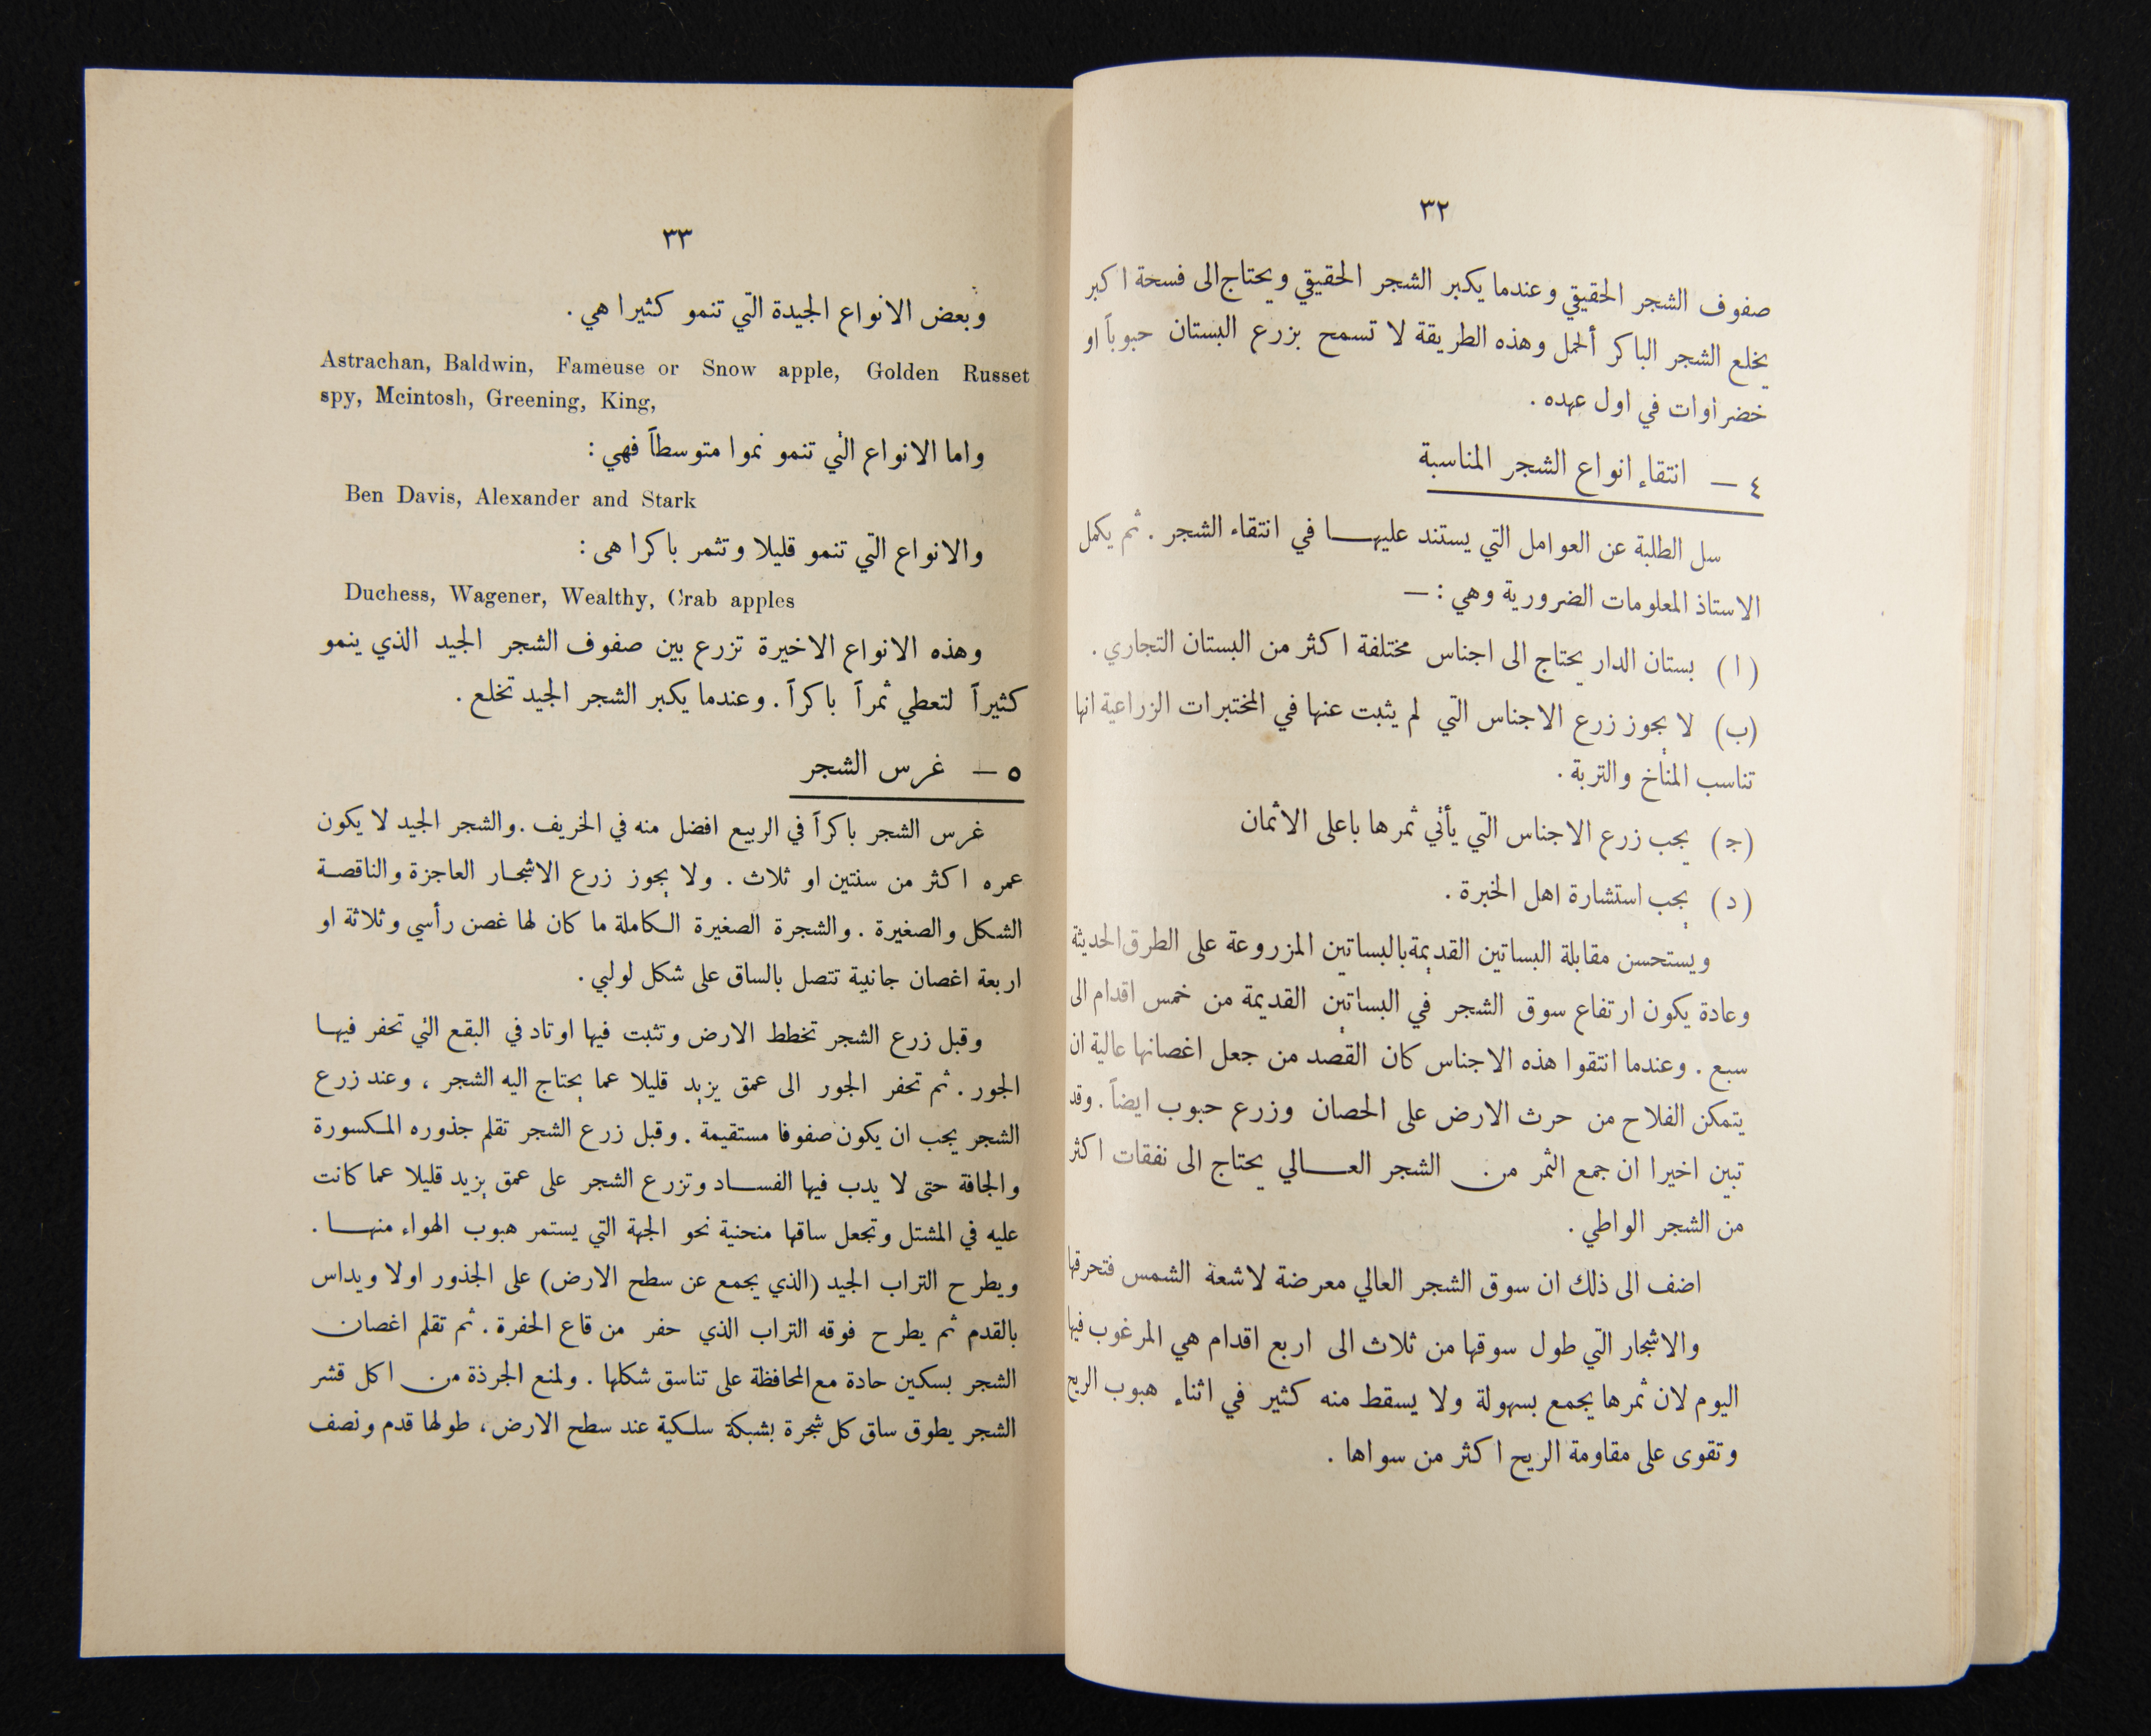 ٣٢
صفوف الشجر الحقيقي وعندما يكبر الشجر الحقيقي ويحتاج الى فسحة اكبر
يخلع الشجر الباكر ألحمل وهذه الطريقة لا تسمح بزرع البستان حبوباً او
خضراوات في اول عهده .
٤ — انتقاء انواع الشجر المناسبة
سل الطلبة عن العوامل التي يستند عليها في انتقاء الشجر . ثم يكمل
الاستاذ المعلومات الضرورية وهي : —
(ا) بستان الدار يحتاج الى اجناس مختلفة اكثر من البستان التجاري .
(ب) لا يجوز زرع الاجناس التي لم يثبت عنها في المختبرات الزراعية انها
تناسب المناخ والتربة .
(ج) يجب زرع الاجناس التي يأتي ثمرها باعلى الاثمان
(د) يجب استشارة اهل الخبرة .
ويستحسن مقابلة البساتين القديمة بالبساتين المزروعة على الطرق الحديثة
وعادة يكون ارتفاع سوق الشجر في البساتين القديمة من خمس اقدام الى
سبع . وعندما انتقوا هذه الاجناس كان القصد من جعل اغصانها عالية ان
يتمكن الفلاح من حرث الارض على الحصان وزرع حبوب ايضاً . وقد
تبين اخيرا ان جمع الثمر من الشجر العالي يحتاج الى نفقات اكثر
من الشجر الواطي .
اضف الى ذلك ان سوق الشجر العالي معرضة لاشعة الشمس فتحرقها
والاشجار التي طول سوقها من ثلاث الى اربع اقدام هي المرغوب فيها
اليوم لان ثمرها يجمع بسهولة ولا يسقط منه كثير في اثناء هبوب الريح
وتقوى على مقاومة الريح اكثر من سواها .
٣٣
وبعض الانواع الجيدة التي تنمو كثيرا هي .
Astrachan, Baldwin, Fameuse or Snow apple, Golden Russet
spy, Mcintosh, Greening, King,
واما الانواع التي تنمو نموا متوسطاً فهي :
Ben Davis, Alexander and Stark
والانواع التي تنمو قليلا وتثمر باكرا هى :
Duchess, Wagener, Wealthy, Crab apples
وهذه الانواع الاخيرة تزرع بين صفوف الشجر الجيد الذي ينمو
كثيراً لتعطي ثمراً باكراً . وعندما يكبر الشجر الجيد تخلع .
٥ — غرس الشجر
غرس الشجر باكراً في الربيع افضل منه في الخريف . والشجر الجيد لا يكون
عمره اكثر من سنتين او ثلاث . ولا يجوز زرع الاشجار العاجزة والناقصة
الشكل والصغيرة . والشجرة الصغيرة الكاملة ما كان لها غصن رأسي وثلاثة او
اربعة اغصان جانبية تتصل بالساق على شكل لولبي .
وقبل زرع الشجر تخطط الارض وتثبت فيها اوتاد في البقع التي تحفر فيها
الجور . ثم تحفر الجور الى عمق يزيد قليلا عما يحتاج اليه الشجر ، وعند زرع
الشجر يجب ان يكون صفوفا مستقيمة . وقبل زرع الشجر تقلم جذوره المكسورة
والجافة حتى لا يدب فيها الفساد وتزرع الشجر على عمق يزيد قليلا عما كانت
عليه في المشتل وتجعل ساقها منحنية نحو الجهة التي يستمر هبوب الهواء منها .
ويطرح التراب الجيد (الذي يجمع عن سطح الارض) على الجذور اولا ويداس
بالقدم ثم يطرح فوقه التراب الذي حفر من قاع الحفرة . ثم تقلم اغصان
الشجر بسكين حادة مع المحافظة على تناسق شكلها . ولمنع الجرذة من اكل قشر
الشجر يطوق ساق كل شجرة بشبكة سلكية عند سطح الارض ، طولها قدم ونصف